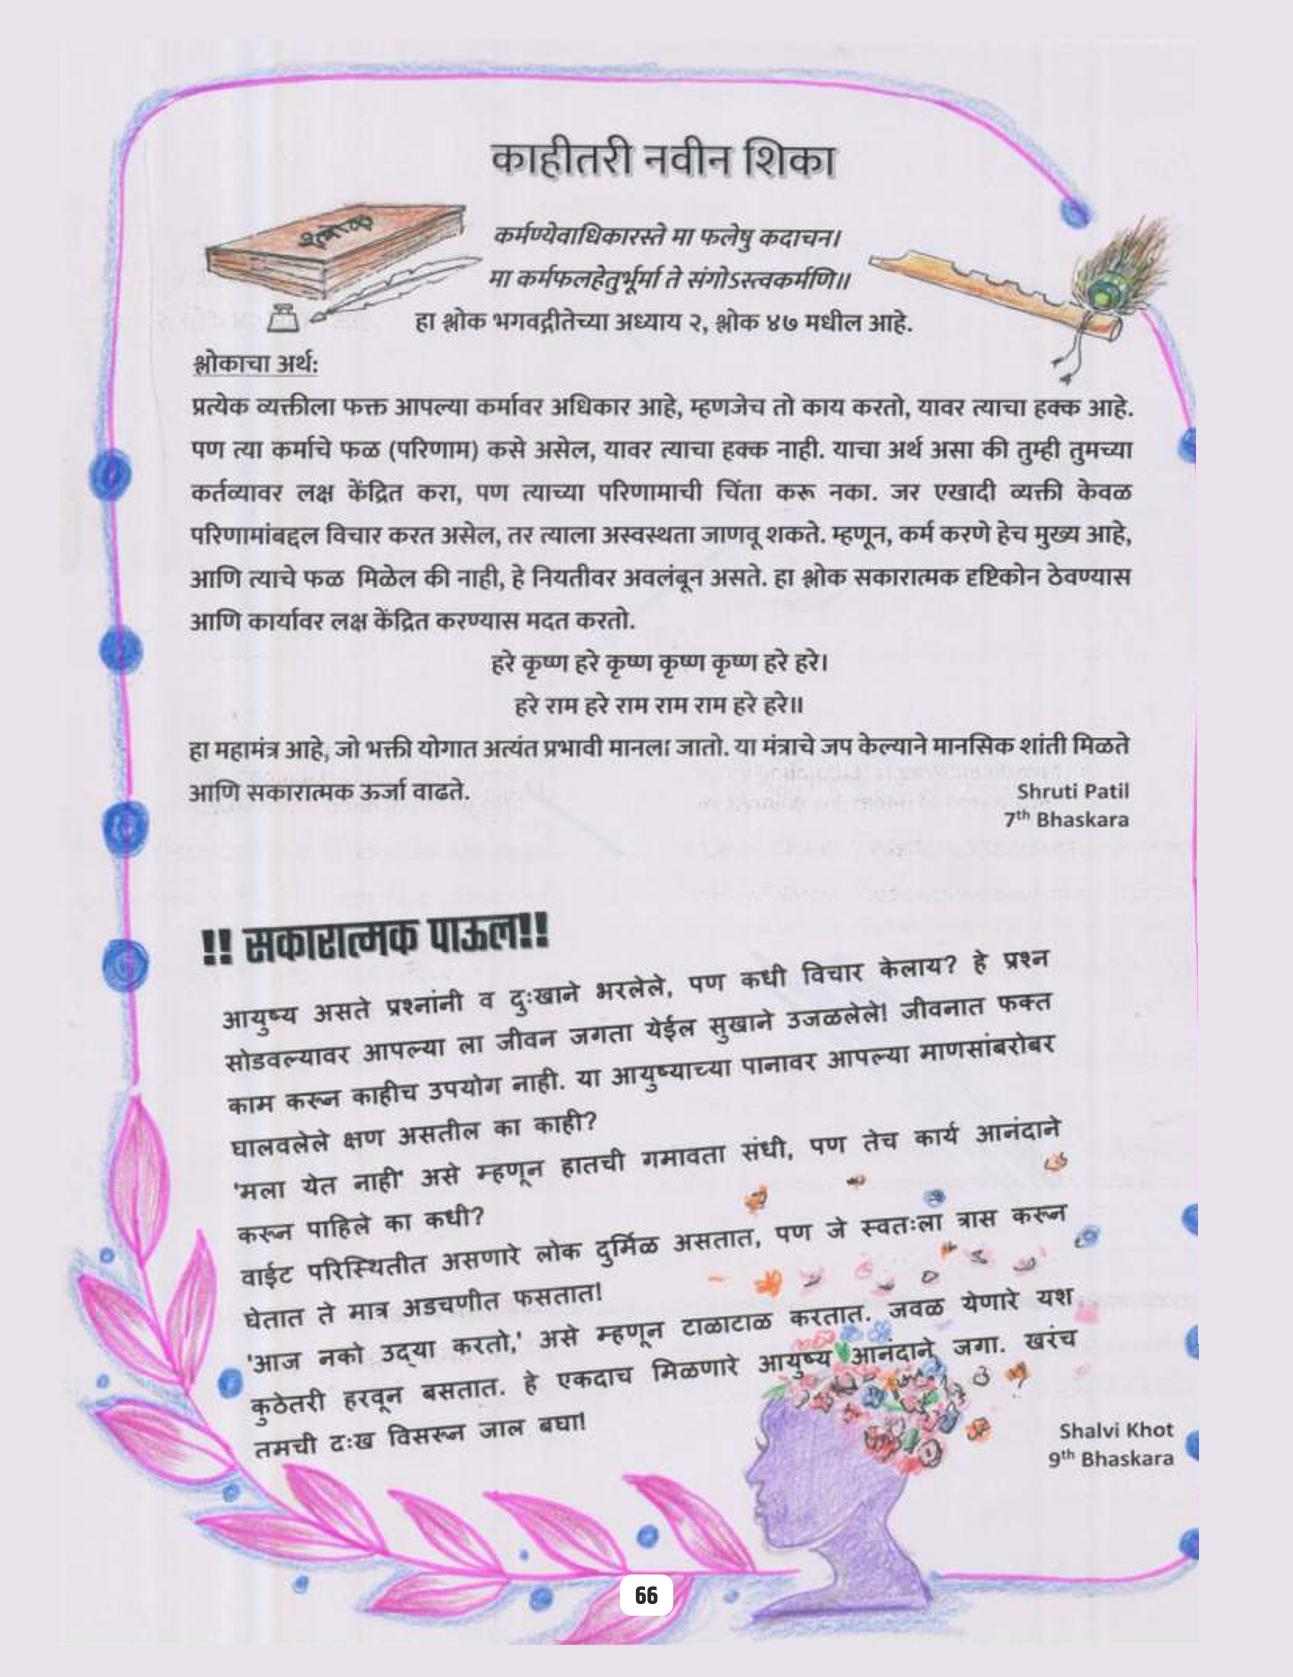 काहीतरी नवीन शिका
श्लोक
कर्मण्येवाधिकारस्ते मा फलेषु कदाचन।
मा कर्मफलहेतुर्भूर्मा ते संगोऽस्त्वकर्मणि॥
हा श्लोक भगवद्गीतेच्या अध्याय २, श्लोक ४७ मधील आहे.
श्लोकाचा अर्थ:
प्रत्येक व्यक्तीला फक्त आपल्या कर्मावर अधिकार आहे, म्हणजेच तो काय करतो, यावर त्याचा हक्क आहे.
पण त्या कर्माचे फळ (परिणाम) कसे असेल, यावर त्याचा हक्क नाही. याचा अर्थ असा की तुम्ही तुमच्या
कर्तव्यावर लक्ष केंद्रित करा, पण त्याच्या परिणामाची चिंता करू नका. जर एखादी व्यक्ती केवळ
परिणामांबद्दल विचार करत असेल, तर त्याला अस्वस्थता जाणवू शकते. म्हणून, कर्म करणे हेच मुख्य आहे,
आणि त्याचे फळ मिळेल की नाही, हे नियतीवर अवलंबून असते. हा श्लोक सकारात्मक दृष्टिकोन ठेवण्यास
आणि कार्यावर लक्ष केंद्रित करण्यास मदत करतो.
हरे कृष्ण हरे कृष्ण कृष्ण कृष्ण हरे हरे।
हरे राम हरे राम राम राम हरे हरे॥
हा महामंत्र आहे, जो भक्ती योगात अत्यंत प्रभावी मानला जातो. या मंत्राचे जप केल्याने मानसिक शांती मिळते
आणि सकारात्मक ऊर्जा वाढते.
Shruti Patil
7th Bhaskara
!! सकारात्मक पाऊल!!
आयुष्य असते प्रश्नांनी व दुःखाने भरलेले, पण कधी विचार केलाय? हे प्रश्न
सोडवल्यावर आपल्या ला जीवन जगता येईल सुखाने उजळलेले! जीवनात फक्त
काम करून काहीच उपयोग नाही. या आयुष्याच्या पानावर आपल्या माणसांबरोबर
घालवलेले क्षण असतील का काही?
'मला येत नाही' असे म्हणून हातची गमावता संधी, पण तेच कार्य आनंदाने
करून पाहिले का कधी?
वाईट परिस्थितीत असणारे लोक दुर्मिळ असतात, पण जे स्वतःला त्रास करून
घेतात ते मात्र अडचणीत फसतात!
'आज नको उद्या करतो,' असे म्हणून टाळाटाळ करतात. जवळ येणारे यश
कुठेतरी हरवून बसतात. हे एकदाच मिळणारे आयुष्य आनंदाने जगा. खरंच
तुमची दुःख विसरून जाल बघा!
Shalvi Khot
9th Bhaskara
66